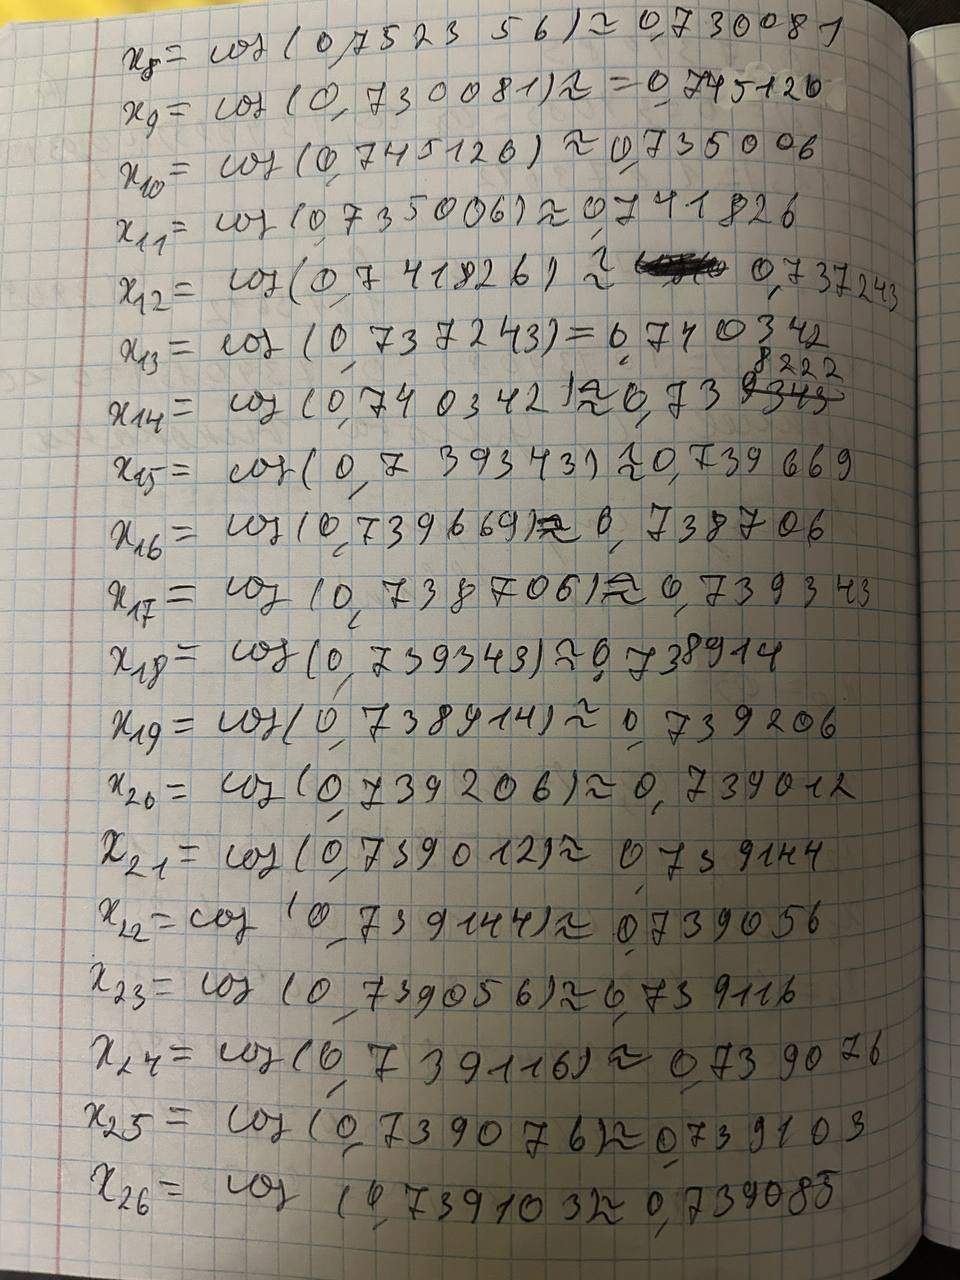 x8 = cos(0,7523 56) ≈ 0,730081
x9 = cos(0,730081) ≈ = 0,745120
x10 = cos(0,745120) ≈ 0,735006
x11 = cos(0,735006) ≈ 0,741826
x12 = cos(0,741826) ≈ 0,737243
x13 = cos(0,737243) = 0,740342
8222
x14 = cos(0,740342) ≈ 0,739343
x15 = cos(0,739343) ≈ 0,739669
x16 = cos(0,739669) ≈ 0,738706
x17 = cos(0,738706) ≈ 0,739343
x18 = cos(0,739343) ≈ 0,738914
x19 = cos(0,738914) ≈ 0,739206
x20 = cos(0,739206) ≈ 0,739012
x21 = cos(0,739012) ≈ 0,739144
x22 = cos(0,739144) ≈ 0,739056
x23 = cos(0,739056) ≈ 0,739116
x24 = cos(0,739116) ≈ 0,739076
x25 = cos(0,739076) ≈ 0,739103
x26 = cos(0,739103) ≈ 0,739085